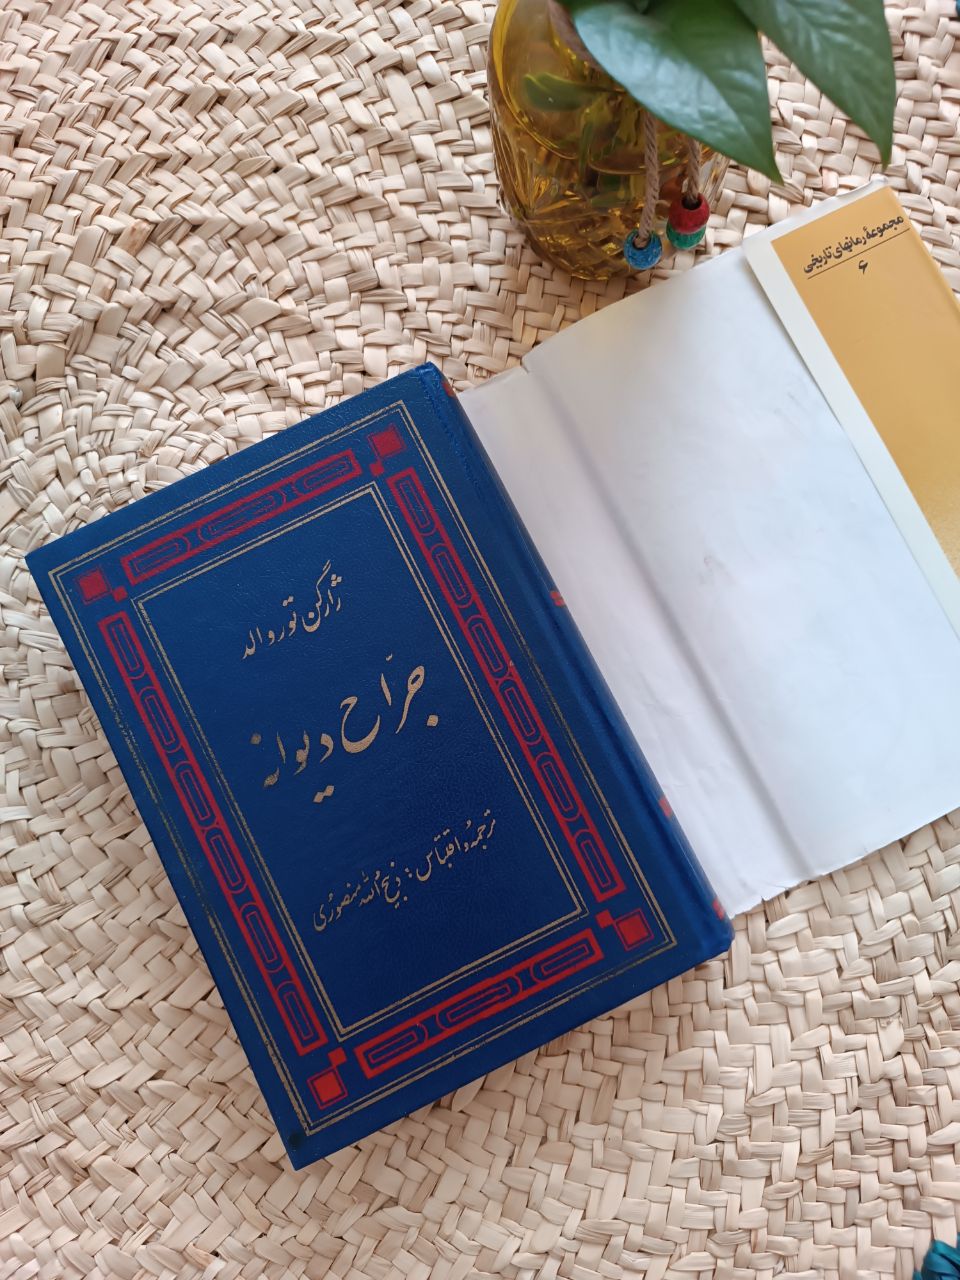 ژارگن توروالد
جرّاح دیوانه
ترجمه و اقتباس : ذبیح الله منصوری
مجموعهٔ رمانهای تاریخی
۶